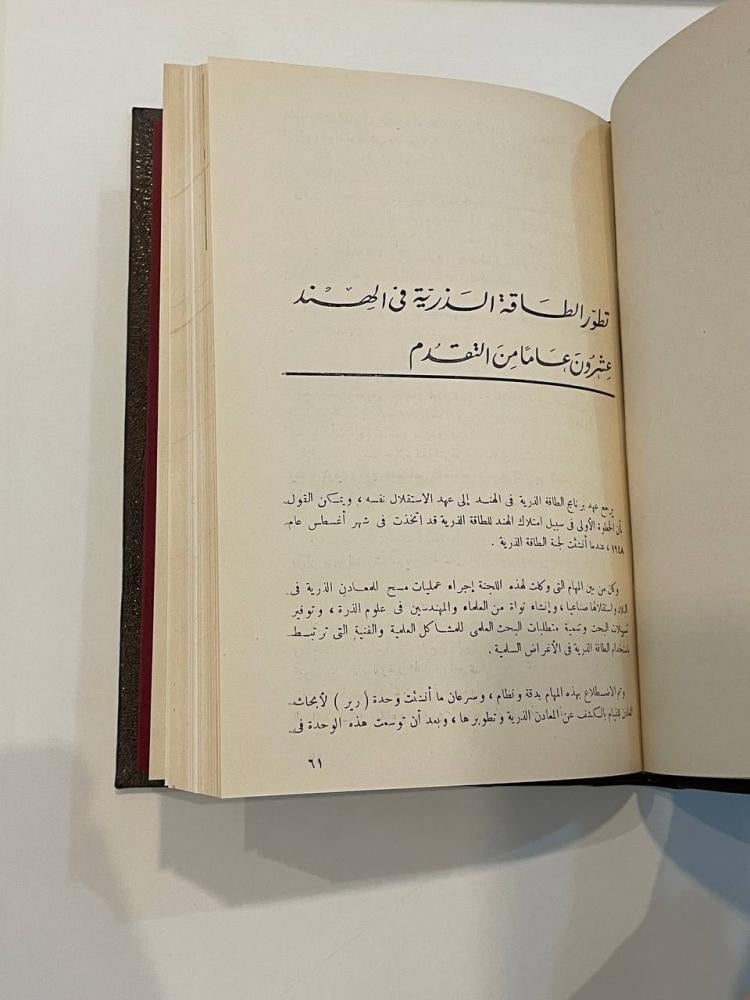 تطوّر الطاقة الذريّة فى الهِند
عِشرُونَ عَامًا مِنَ التقدم
يرجع عهد برنامج الطاقة الذرية فى الهند إلى عهد الاستقلال نفسه ، ويمكن القول
بأن الخطوة الأولى فى سبيل امتلاك الهند للطاقة الذرية قد اتخذت فى شهر أغسطس عام
١٩٤٨ ، عندما أنشئت لجنة الطاقة الذرية .
وكان من بين المهام التى وكلت لهذه اللجنة إجراء عمليات مسح للمعادن الذرية فى
البلاد واستغلالها صناعيا ، وإنشاء نواة من العلماء والمهندسين فى علوم الذرة ، وتوفير
تسهيلات البحث وتنمية متطلبات البحث العلمى للمشاكل العلمية والفنية التى ترتبط
باستخدام الطاقة الذرية فى الأغراض السلمية .
وتم الاضطلاع بهذه المهام بدقة ونظام ، وسرعان ما أنشئت وحدة ( رير ) لأبحاث
المعادن للقيام بالكشف عن المعادن الذرية وتطويرها ، وبعد أن توسعت هذه الوحدة فى
٦١